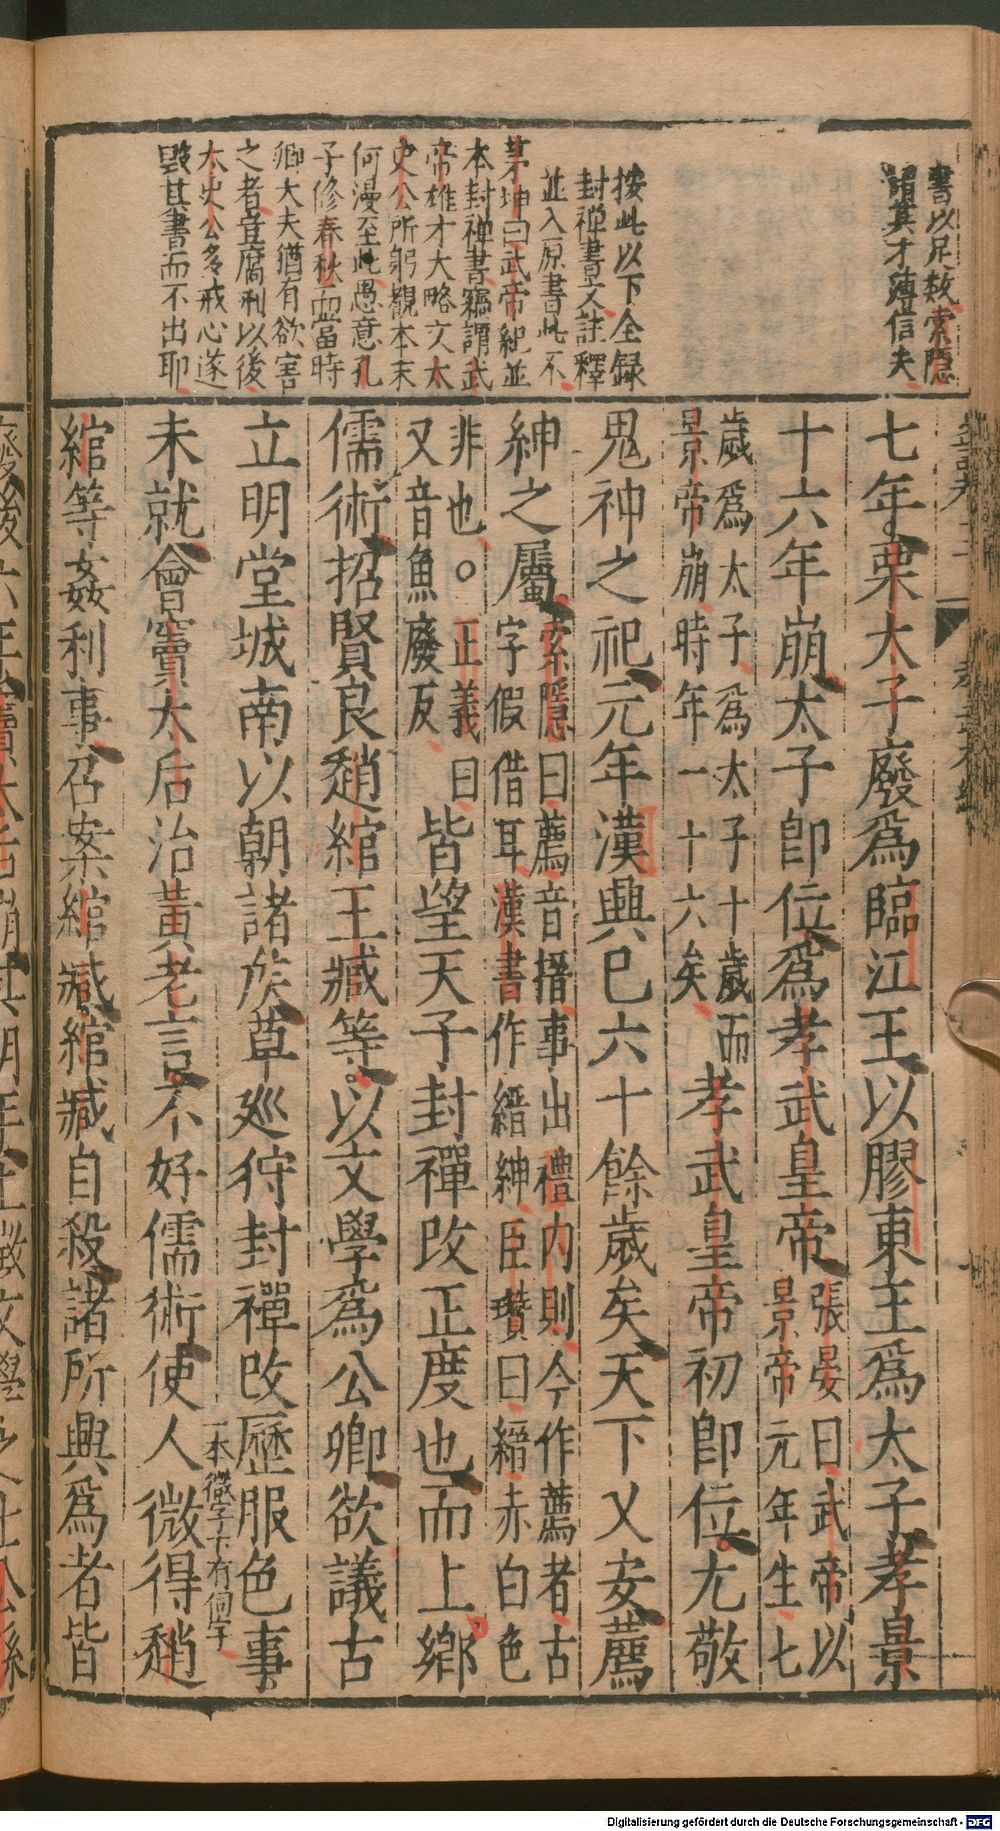 書以足数索隱
謂其才薄信夫
按此以下全録
封禅書文註釋
並入原書此不
茅坤曰武帝紀並
本封禅書竊謂武
帝雄才大略文太
史公所躬觀本末
何漫至此愚意孔
子修春秋而當時
卿大夫猶有欲害
之者豈腐刑以後
太史公多戒心遂
毀其書而不出耶
七年栗太子廢爲臨江王以膠東王爲太子孝景
十六年崩太子卽位爲孝武皇帝
張晏曰武帝以
景帝元年生七
歲爲太子爲太子十歲而
景帝崩時年一十六矣
孝武皇帝初卽位尤敬
鬼神之祀元年漢興已六十餘歲矣天下乂安薦
紳之屬
索隱曰薦音搢事出禮内則今作薦者古
字假借耳漢書作縉紳臣瓚曰縉赤白色
非也○正義曰
又音魚廢反
皆望天子封禪改正度也而上鄉
儒術招賢良趙綰王臧等以文學爲公卿欲議古
立明堂城南以朝諸侯草巡狩封禪改歷服色事
未就會竇太后治黃老言不好儒術使人微得趙
一本微字下有伺字
綰等姦利事召案綰臧綰臧自殺諸所興爲者皆
Digitalisierung gefördert durch die Deutsche Forschungsgemeinschaft - DFG